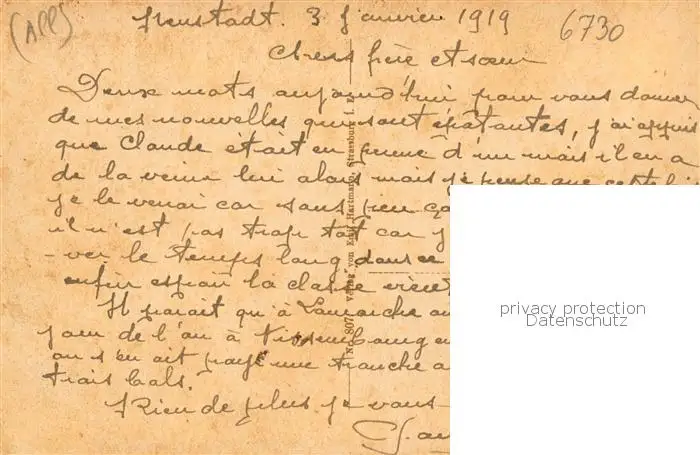 (APP)
Neustadt. 3 Janvier 1919
6730
chers frère et sœur
Deux mots aujourd'hui pour vous donner
de mes nouvelles qui sont épatantes, j'ai appris
que Claude était en perme d'un mois il en a
de la veine lui alors mais je pense que
je le verrai car sans
il n'est pas trop tôt car j
-ver le temps long dans ce
enfin espoir la classe vient
Il parait qu'à Lamarche au
jour de l'an à
on s'en ait payé une tranche a
trois bals.
Rien de plus je vous
No. 8071 Verlag von Emil Hartmann, Strassburg i. E.
privacy protection
Datenschutz